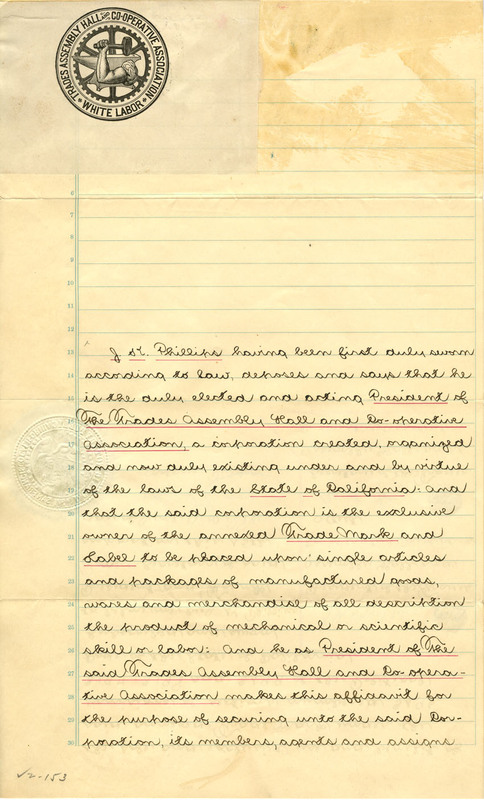 TRADES ASSEMBLY HALL AND CO-OPERATIVE ASSOCIATION
• WHITE LABOR •
6
7
8
9
10
11
12
13
14
15
16
17
18
19
20
21
22
23
24
25
26
27
28
29
30
J H. Phillips having been first duly sworn
according to law, deposes and says that he
is the duly elected and acting President of
The Trades Assembly Hall and Co-operative
Association, a corporation created, organized
and now duly existing under and by virtue
of the laws of the State of California: And
that the said corporation is the exclusive
owner of the annexed Trade Mark and
Label to be placed upon single articles
and packages of manufactured goods,
wares and merchandise of all description
the product of mechanical or scientific
skill or labor: And he as President of The
said Trades Assembly Hall and Co-opera-
tive Association makes this affidavit for
the purpose of securing unto the said Cor-
poration, its members, agents and assigns
√2-153